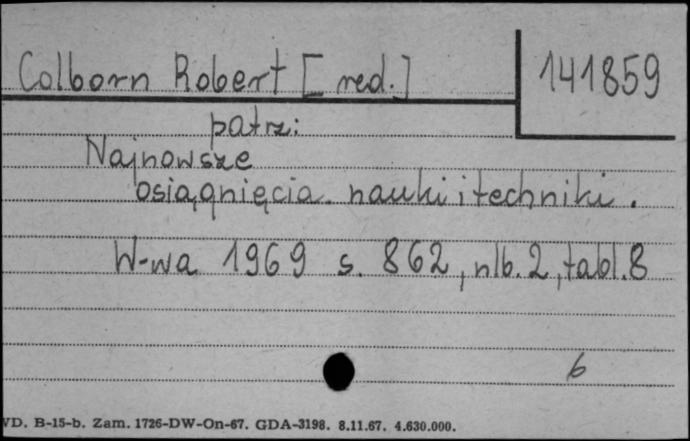 Colborn Robert [red.]
141859
patrz:
Najnowsze
osiągnięcia nauki i techniki.
W-wa 1969 s. 862, nlb. 2, tabl. 8
6
VD. B-15-b. Zam. 1726-DW-On-67. GDA-3198. 8.11.67. 4.630.000.